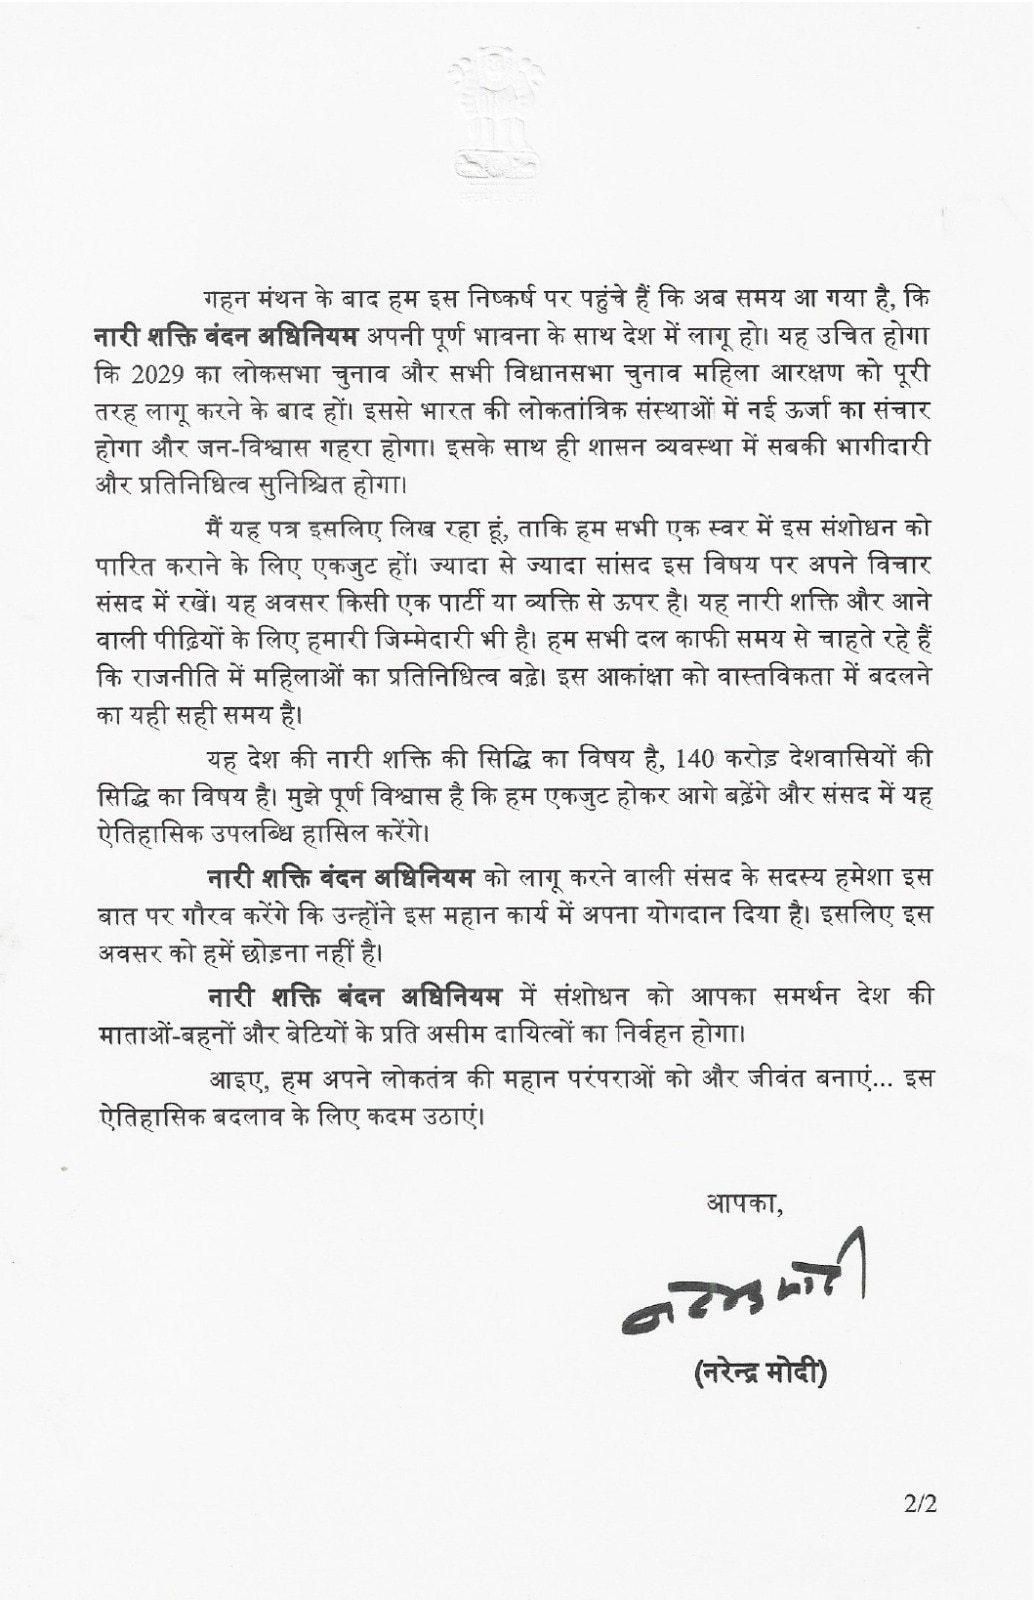 गहन मंथन के बाद हम इस निष्कर्ष पर पहुंचे हैं कि अब समय आ गया है, कि
नारी शक्ति वंदन अधिनियम अपनी पूर्ण भावना के साथ देश में लागू हो। यह उचित होगा
कि 2029 का लोकसभा चुनाव और सभी विधानसभा चुनाव महिला आरक्षण को पूरी
तरह लागू करने के बाद हों। इससे भारत की लोकतांत्रिक संस्थाओं में नई ऊर्जा का संचार
होगा और जन-विश्वास गहरा होगा। इसके साथ ही शासन व्यवस्था में सबकी भागीदारी
और प्रतिनिधित्व सुनिश्चित होगा।
मैं यह पत्र इसलिए लिख रहा हूं, ताकि हम सभी एक स्वर में इस संशोधन को
पारित कराने के लिए एकजुट हों। ज्यादा से ज्यादा सांसद इस विषय पर अपने विचार
संसद में रखें। यह अवसर किसी एक पार्टी या व्यक्ति से ऊपर है। यह नारी शक्ति और आने
वाली पीढ़ियों के लिए हमारी जिम्मेदारी भी है। हम सभी दल काफी समय से चाहते रहे हैं
कि राजनीति में महिलाओं का प्रतिनिधित्व बढ़े। इस आकांक्षा को वास्तविकता में बदलने
का यही सही समय है।
यह देश की नारी शक्ति की सिद्धि का विषय है, 140 करोड़ देशवासियों की
सिद्धि का विषय है। मुझे पूर्ण विश्वास है कि हम एकजुट होकर आगे बढ़ेंगे और संसद में यह
ऐतिहासिक उपलब्धि हासिल करेंगे।
नारी शक्ति वंदन अधिनियम को लागू करने वाली संसद के सदस्य हमेशा इस
बात पर गौरव करेंगे कि उन्होंने इस महान कार्य में अपना योगदान दिया है। इसलिए इस
अवसर को हमें छोड़ना नहीं है।
नारी शक्ति वंदन अधिनियम में संशोधन को आपका समर्थन देश की
माताओं-बहनों और बेटियों के प्रति असीम दायित्वों का निर्वहन होगा।
आइए, हम अपने लोकतंत्र की महान परंपराओं को और जीवंत बनाएं... इस
ऐतिहासिक बदलाव के लिए कदम उठाएं।
आपका,
नरेन्द्र मोदी
(नरेन्द्र मोदी)
2/2